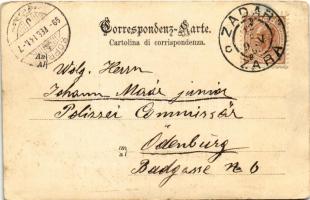 Correspondenz-Karte.
Cartolina di corrispondenza.
ZADAR
ZARA
Wolg. Herrn
Johann Maár junior
Polizei Commissär
An
Al
in
a
Ödenburg
Badgasse No 6